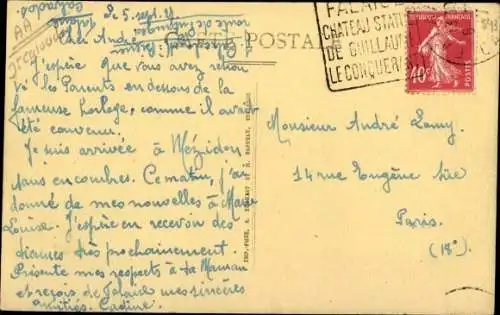 Le 5 sept.
Cher André
J'espère que vous avez retrou
vé les Parents en dessous de la
fameuse horloge, comme il avait
été convenu.
Je suis arrivée à Mézidon
sans encombres. Ce matin, j'ai
donné de mes nouvelles à Marie
Louise. J'espère en recevoir des
siennes très prochainement.
Présente mes respects à ta Maman
et reçois de Falaise mes sincères
amitiés.
CARTE POSTALE
FALAISE
CHATEAU STATUE
DE GUILLAUME
LE CONQUERANT
REPUBLIQUE FRANÇAISE
40c
POSTES
Monsieur André Lamy
14 rue Eugène Süe
Paris.
(18e)